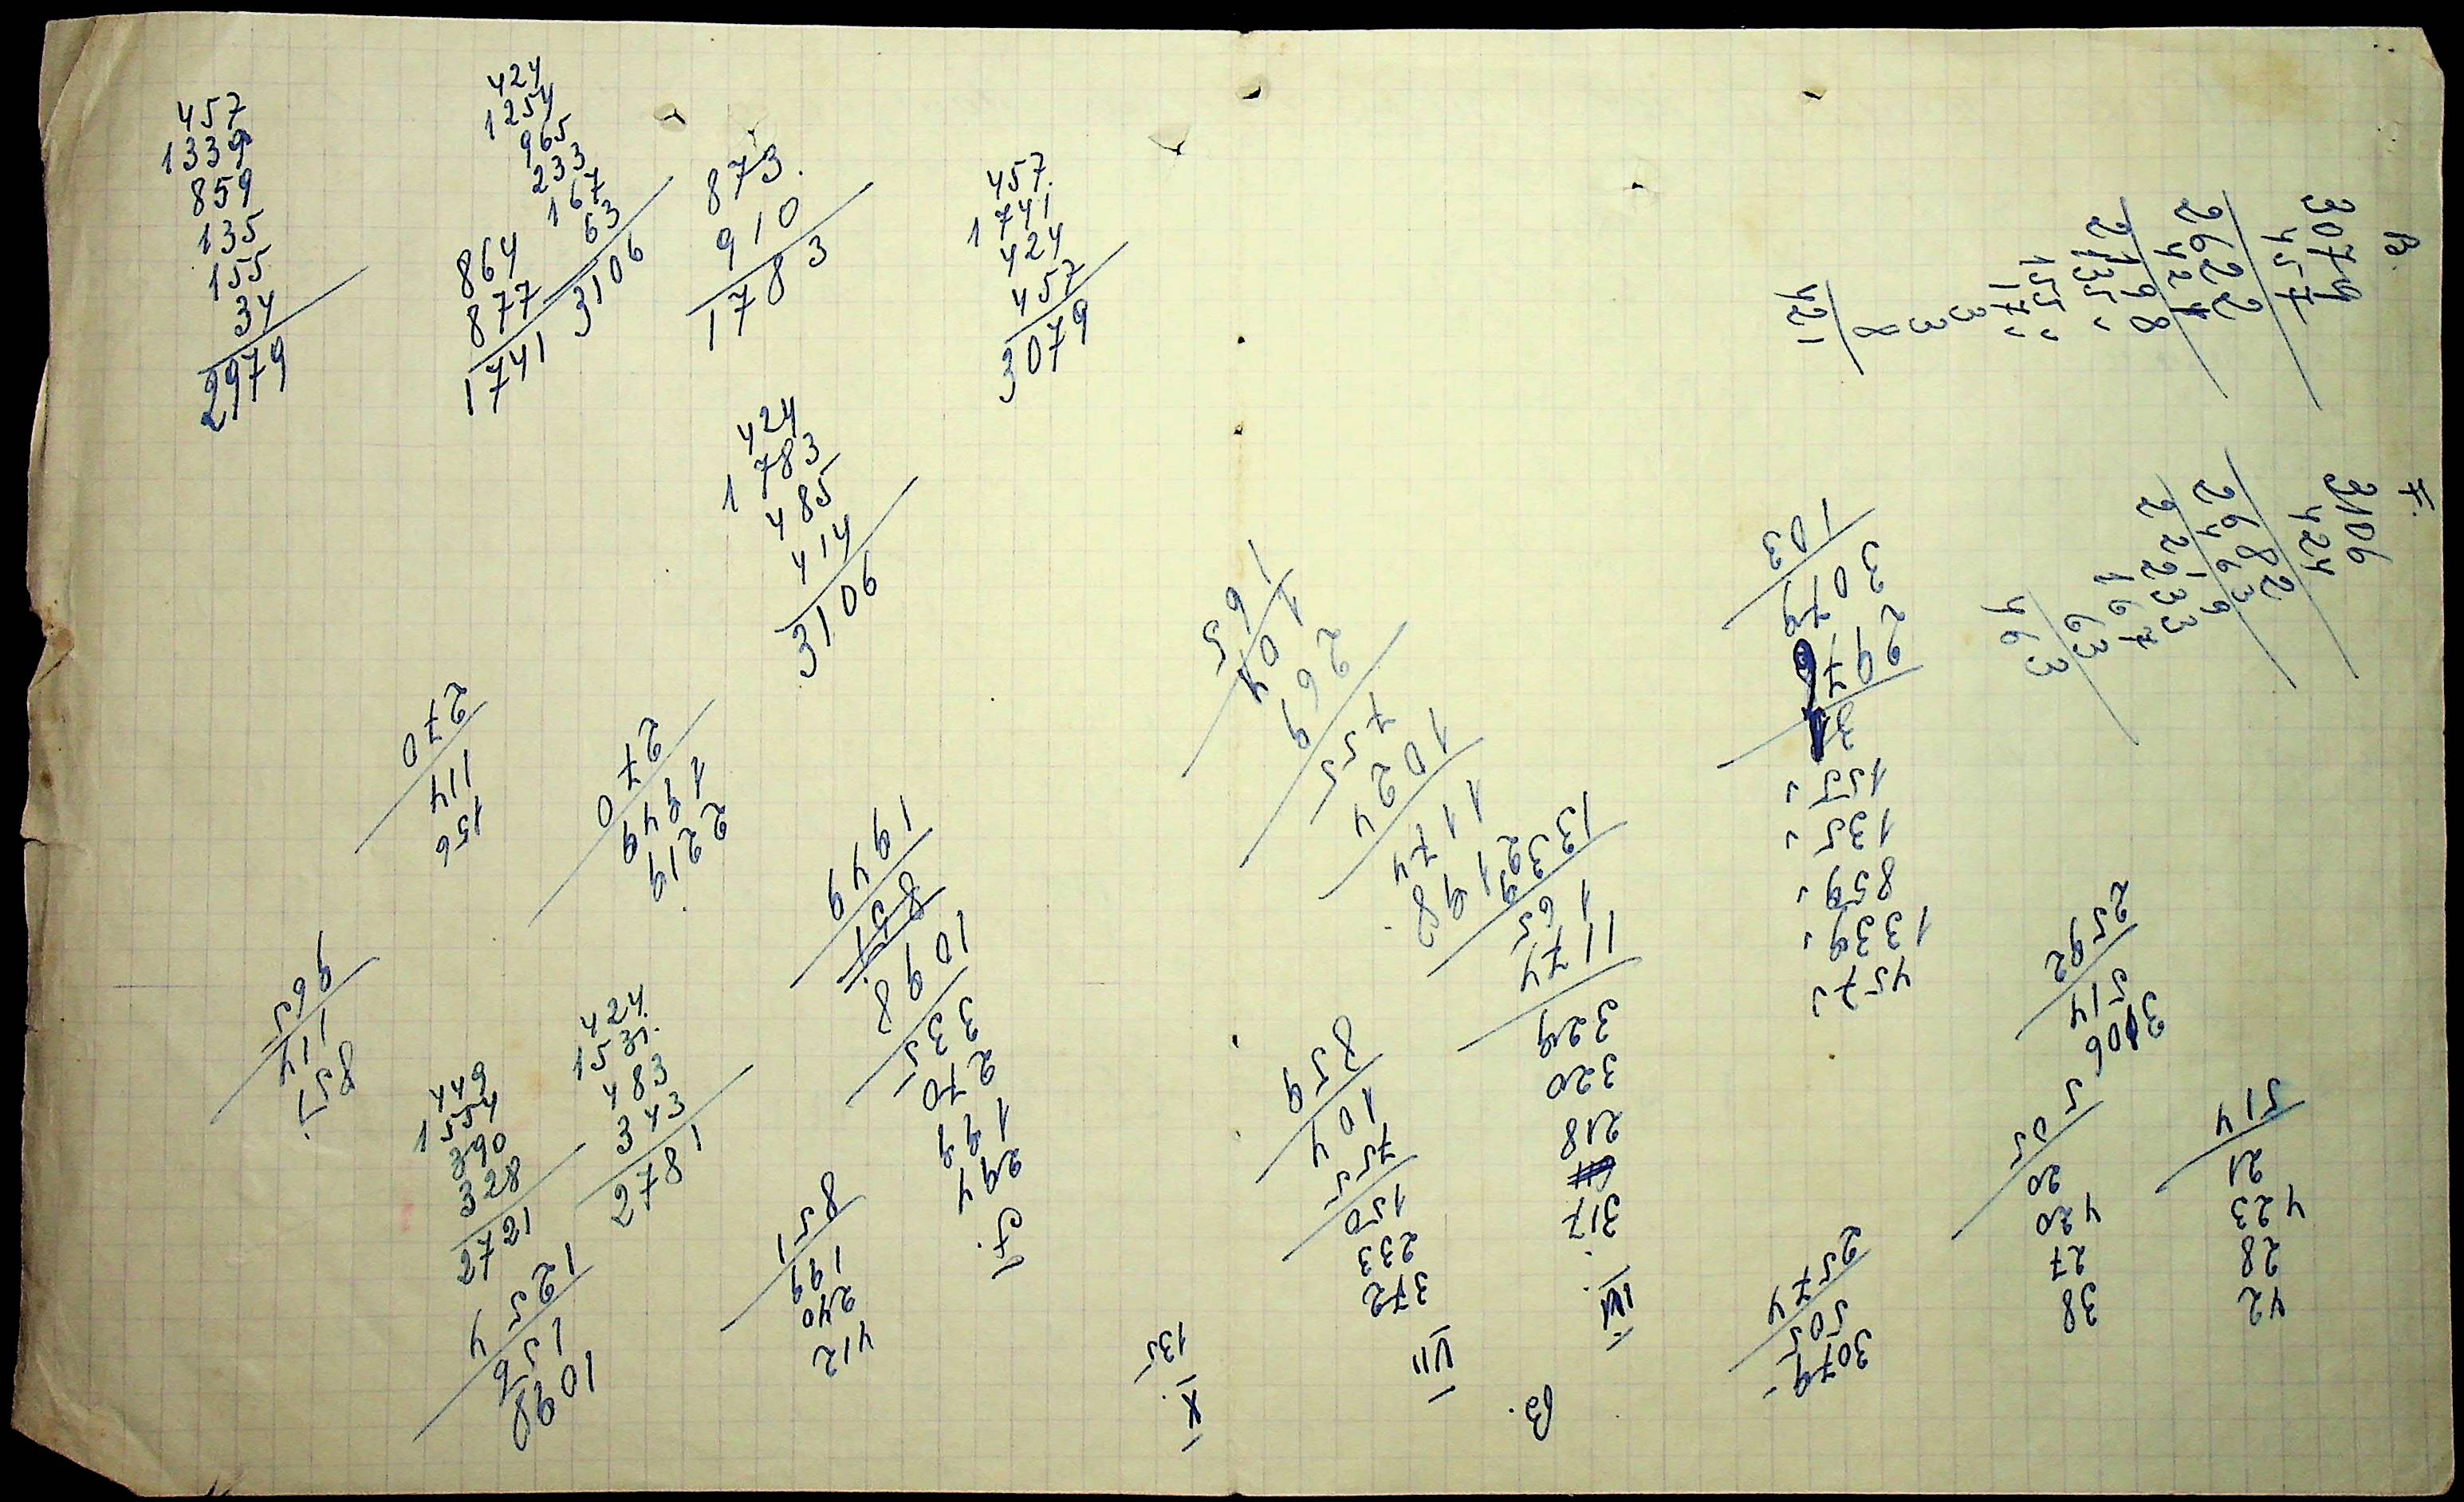 457
1339
859
135
155
34
2979
424
1254
965
233
167
63
3106
864
877
1741
873.
910
1783
457.
1741
424
457
3079
424
1783
485
414
3106
B.
3079
457
2622
424
2198
135
155
17
33
8
421
F.
3106
424
2682
463
2219
233
167
63
463
457
1339
859
135
155
3079
103
156
114
270
2219
1949
270
857.
114
965
449
1554
390
328
2721
424.
1531.
483
343
2781
1098
156
1254
412
240
199
851
F.
294
199
270
335
1098
851
1949
X
135
VII
372
233
150
755
104
859
B.
VI
317
218
320
319
1174
165
1339
2198.
1174
1024
755
269
104
165
3079
505
2574
38
27
420
20
505
3106
514
2592
42
28
423
21
514